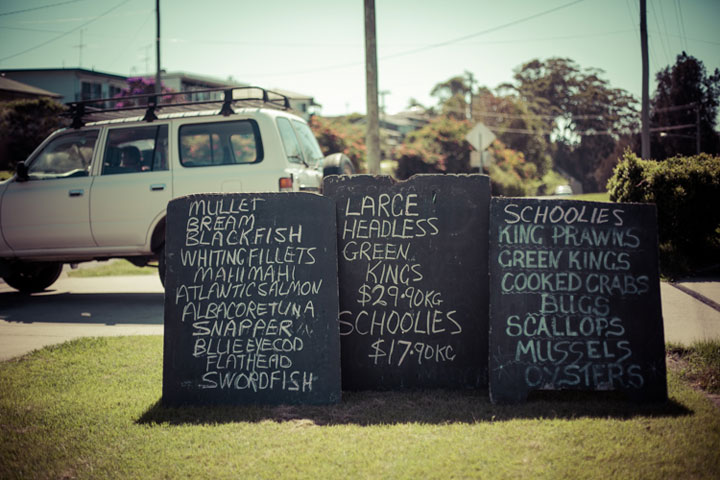 MULLET
BREAM
BLACKFISH
WHITING FILLETS
MAHI MAHI
ATLANTIC SALMON
ALBACORE TUNA
SNAPPER
BLUE EYE COD
FLATHEAD
SWORDFISH
LARGE
HEADLESS
GREEN
KINGS
$29.90KG
SCHOOLIES
$17.90KG
SCHOOLIES
KING PRAWNS
GREEN KINGS
COOKED CRABS
BUGS
SCALLOPS
MUSSELS
OYSTERS